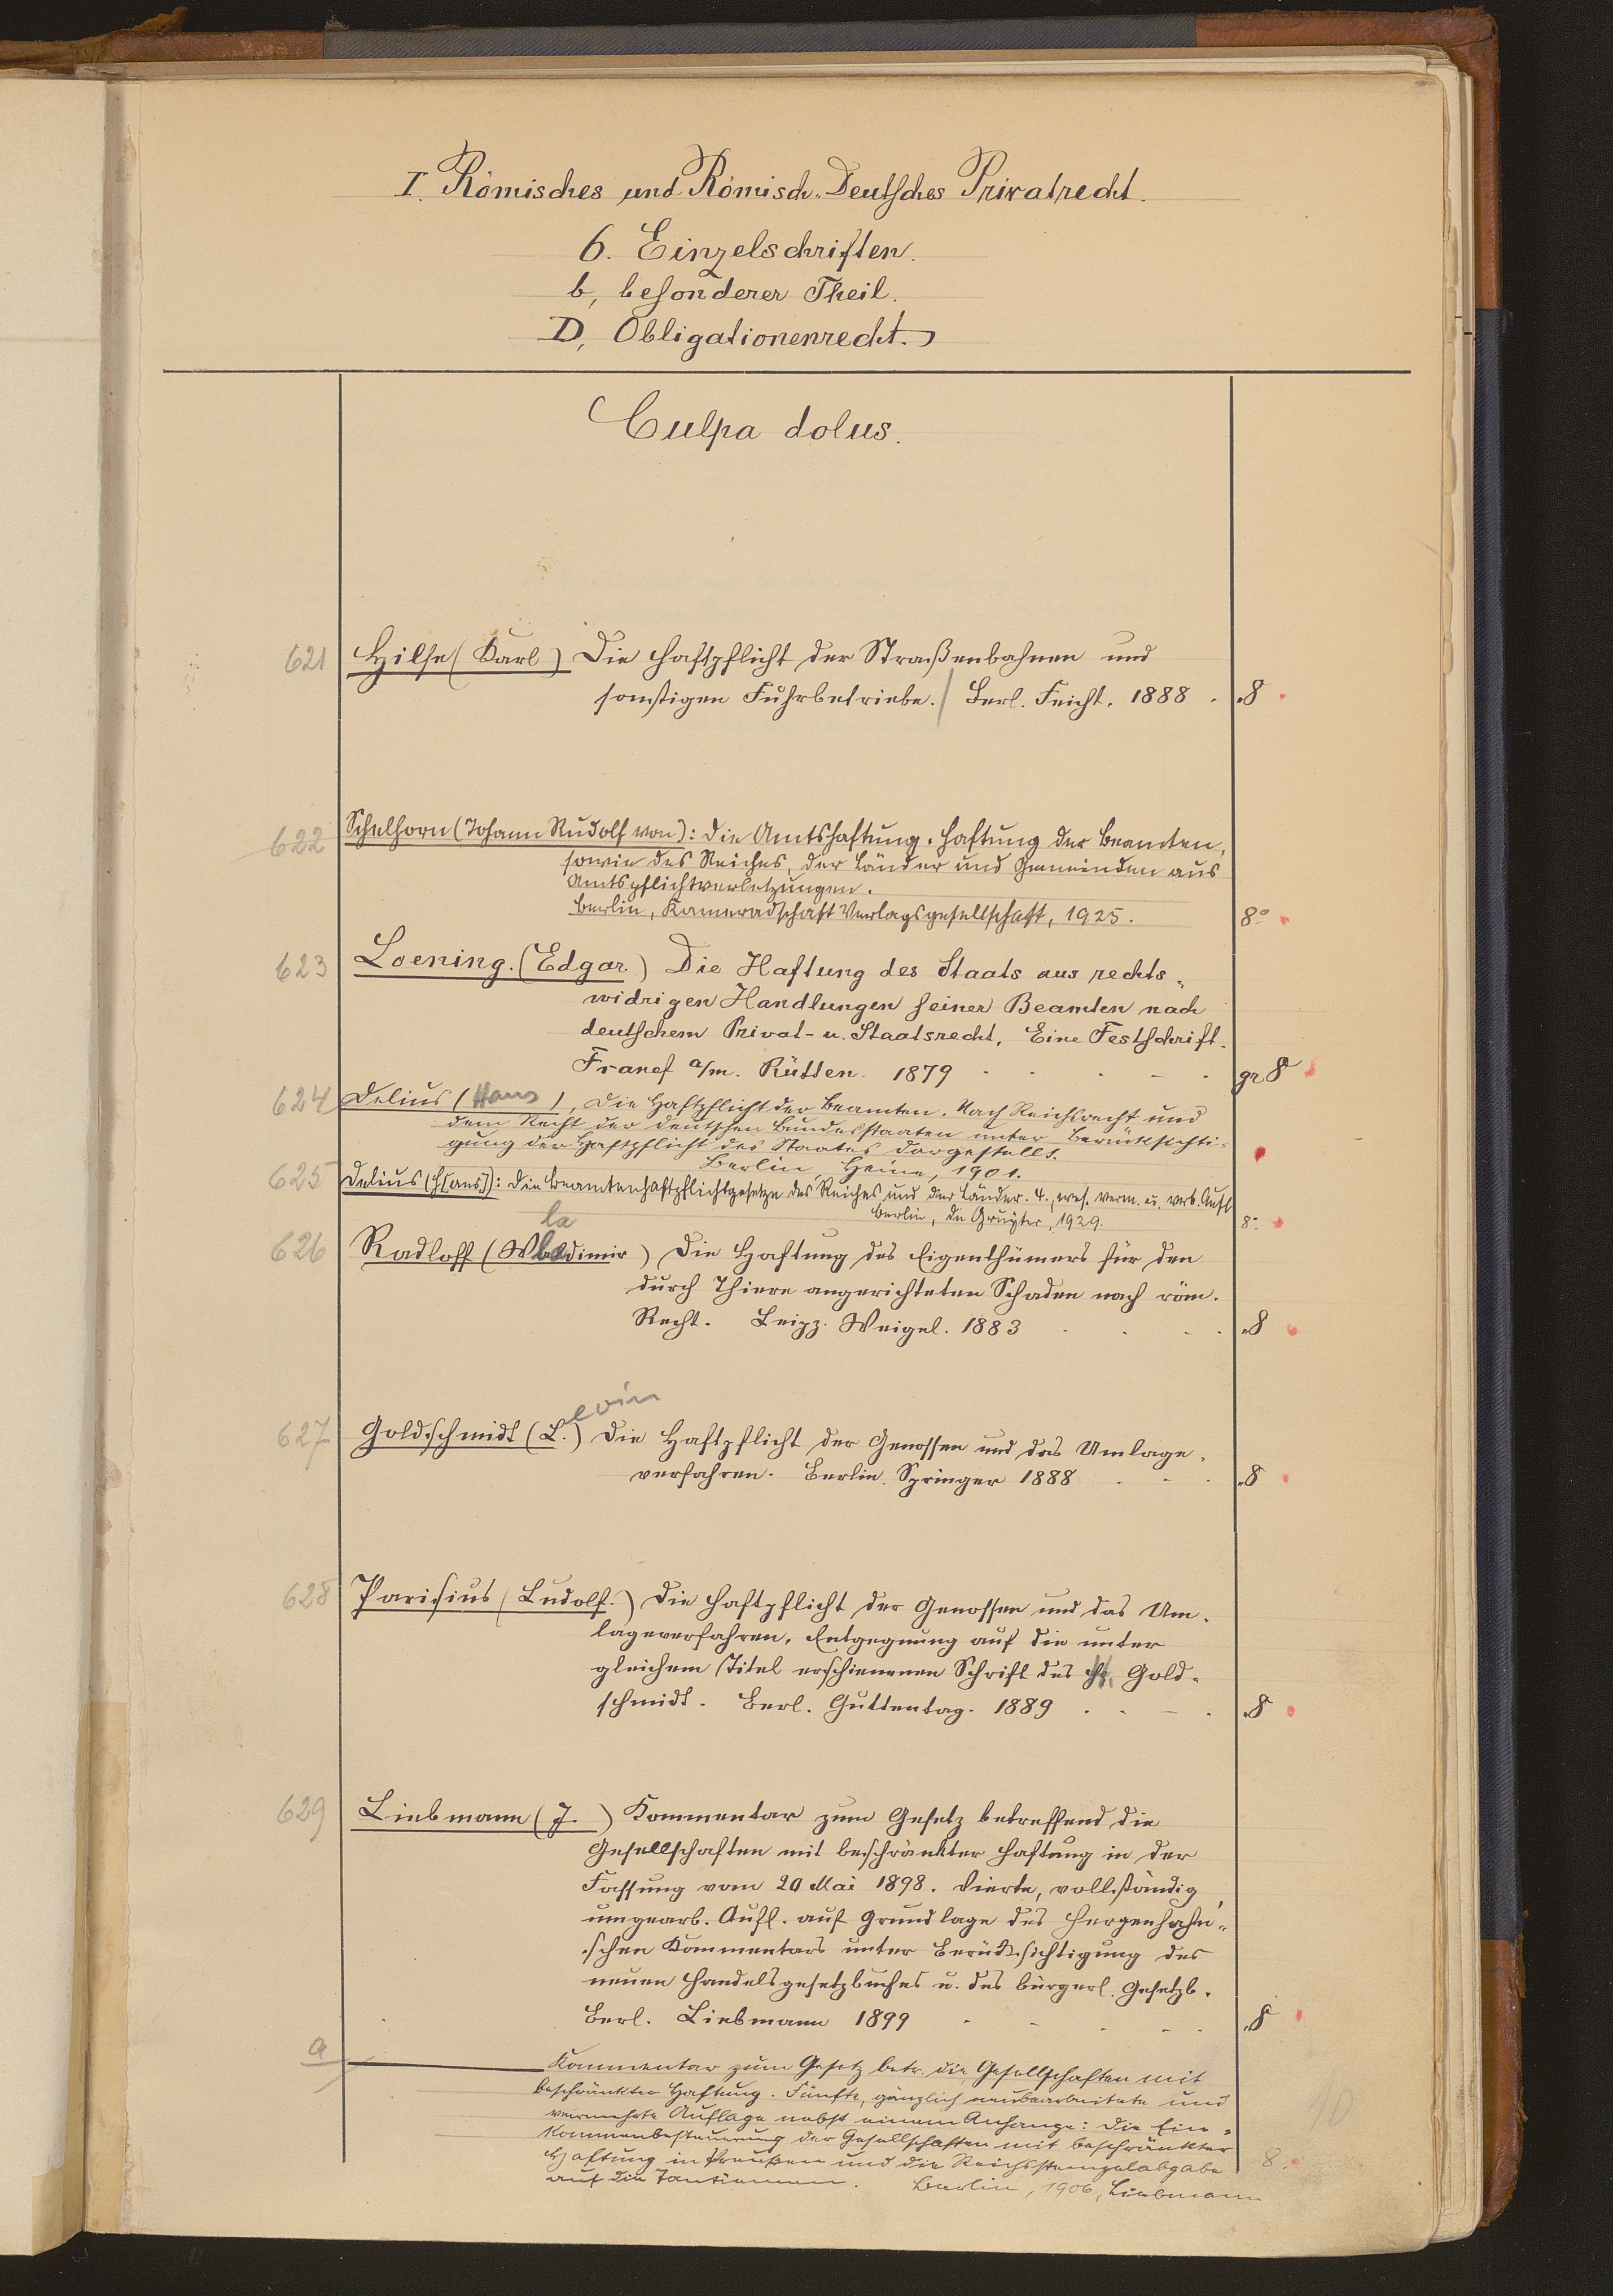 I. Römisches und Römisch-Deutsches Privatrecht.
6. Einzelschriften.
b, besonderer Theil.
D, Obligationenrecht.
Culpa dolus.
621 Hilse (Karl) Die Haftpflicht der Straßenbahnen und
sonstigen Fuhrbetriebe. Berl. Feicht. 1888 . 8
622 Schelhorn (Johann Rudolf von): Die Amtshaftung. Haftung der Beamten,
sowie des Reiches, der Länder und Gemeinden aus
Amtspflichtverletzungen.
Berlin, Kameradschaft Verlagsgesellschaft, 1925. 8°
623 Loening. (Edgar.) Die Haftung des Staats aus rechts-
widrigen Handlungen seiner Beamten nach
deutschem Privat- u. Staatsrecht. Eine Festschrift.
Francf a/m. Rütten. 1879 gr 8
624 Delius (Hans), Die Haftpflicht der Beamten. Nach Reichsrecht und
dem Recht der deutschen Bundesstaaten unter Berücksichti-
gung der Haftpflicht des Staates dargestellt.
Berlin, Heine, 1901.
625 Delius (H[ans]): Die Beamtenhaftpflichtgesetze des Reiches und der Länder. 4., wes. verm. u. verb. Aufl
Berlin, de Gruyter, 1929. 8°
la
626 Radloff (Wladimir) Die Haftung des Eigenthümers für den
durch Thiere angerichteten Schaden nach röm.
Recht. Leipz. Weigel. 1883 8
evin
627 Goldschmidt (L.) Die Haftpflicht der Genossen und das Umlage-
verfahren. Berlin. Springer 1888 8
628 Parisius (Ludolf.) Die Haftpflicht der Genossen und das Um-
lageverfahren. Entgegnung auf die unter
gleichem Titel erschienenen Schrift des H. Gold-
schmidt. Berl. Guttentag. 1889 8
629 Liebmann (J.) Kommentar zum Gesetz betreffend die
Gesellschaften mit beschränkter Haftung in der
Fassung vom 20 Mai 1898. Vierte, vollständig
umgearb. Aufl. auf Grundlage des Hergenhahn-
schen Kommentars unter Berücksichtigung des
neuen Handelsgesetzbuches u. des bürgerl. Gesetzb.
Berl. Liebmann 1899 8
a Kommentar zum Gesetz betr. die Gesellschaften mit
beschränkter Haftung. Fünfte, gänzlich neubearbeitete und
vermehrte Auflage nebst einem Anhange: Die Ein-
kommenbesteuerung der Gesellschaften mit beschränkter
Haftung in Preußen und die Reichsstempelabgabe 8.
auf die Tantiemen. Berlin, 1906, Liebmann
10